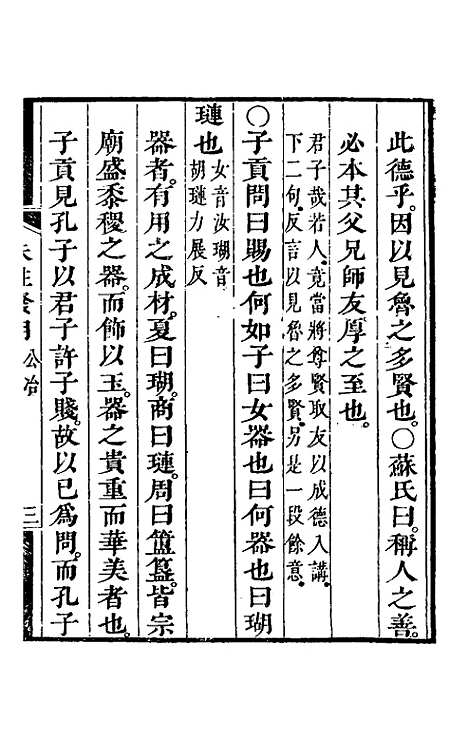 此德乎。因以見魯之多賢也。〇蘇氏曰。稱人之善。
必本其父兄師友厚之至也。
君子哉若人。竟當將尊賢取友以成德入講。
下二句。反言以見魯之多賢。另是一段餘意。
〇子貢問曰賜也何如子曰女器也曰何器也曰瑚
璉也
女音汝瑚音
胡璉力展反
器者。有用之成材。夏曰瑚。商曰璉。周曰簠簋。皆宗
廟盛黍稷之器。而飾以玉。器之貴重而華美者也。
子貢見孔子以君子許子賤。故以已爲問。而孔子
公冶
三